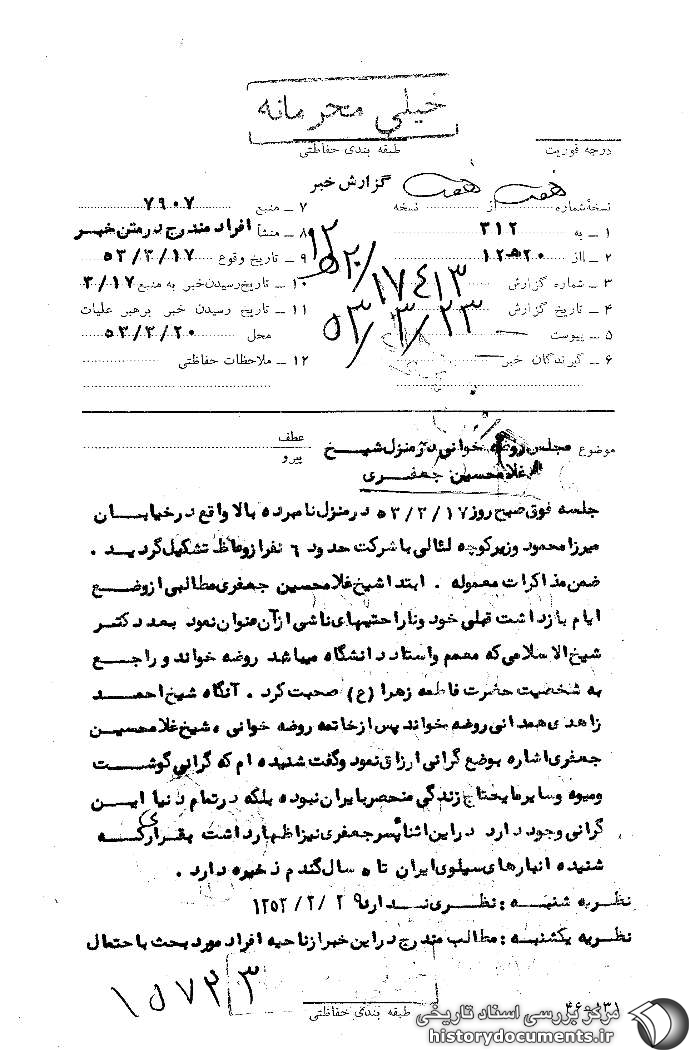 خیلی محرمانه
درجه فوریت
طبقه بندی حفاظتی
گزارش خبر
نسخهٔ شماره هفت از هفت نسخه
۱ ــ به ۳۱۲
۲ ــ از ۱۲ ه ۲۰
۳ ــ شماره گزارش ۱۷۴۱۳/ ه۲۰ ۱۲
۴ ــ تاریخ گزارش ۵۳/۳/۲۳
۵ ــ پیوست
۶ ــ گیرندگان خبر
۷ ــ منبع ۷۹۰۷
۸ ــ منشأ افراد مندرج در متن خبر
۹ ــ تاریخ وقوع ۵۳/۳/۱۷
۱۰ ــ تاریخ رسیدن خبر به منبع ۳/۱۷
۱۱ ــ تاریخ رسیدن خبر برهبر عملیات
محل ۵۳/۳/۲۰
۱۲ ــ ملاحظات حفاظتی
موضوع مجلس روضه خوانی در منزل شیخ
غلامحسین جعفری
عطف
پیرو
جلسه فوق صبح روز ۵۳/۳/۱۷ در منزل نامبرده بالا واقع در خیابان
میرزا محمود وزیر کوچه لئالی با شرکت حدود ۶ نفر از وعاظ تشکیل گردید .
ضمن مذاکرات معموله . ابتدا شیخ غلامحسین جعفری مطالبی از وضع
ایام بازداشت قبلی خود و ناراحتیهای ناشی از آن عنوان نمود بعد دکتر
شیخ الاسلامی که معمم و استاد دانشگاه میباشد روضه خواند و راجع
به شخصیت حضرت فاطمه زهرا (ع) صحبت کرد . آنگاه شیخ احمد
زاهدی همدانی روضه خواند پس از خاتمه روضه خوانی ه شیخ غلامحسین
جعفری اشاره بوضع گرانی ارزاق نمود و گفت شنیده ام که گرانی گوشت
و میوه و سایر مایحتاج زندگی منحصر بایران نبوده بلکه در تمام دنیا این
گرانی وجود دارد در این اثنا پسر جعفری نیز اظهار داشت بقراریکه
شنیده انبارهای سیلوی ایران تا ۵ سال گندم ذخیره دارد .
نظریه شنبه : نظری ندارد
نظریه یکشنبه : مطالب مندرج در این خبر از ناحیه افراد مورد بحث باحتمال
۱۵۷۲۳
طبقه بندی حفاظتی
مرکز بررسی اسناد تاریخی
historydocuments.ir